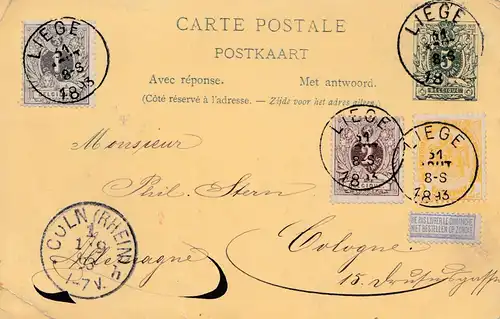 CARTE POSTALE
POSTKAART
Avec réponse. Met antwoord.
(Côté réservé à l'adresse. — Zijde voor het adres alleen.)
LIEGE
31
8-S
1893
LIEGE
31
8-S
18
BELGIQUE
LIEGE
31
8-S
18
2
LIEGE
31
AOUT
8-S
1893
NE PAS LIVRER LE DIMANCHE
NIET BESTELLEN OP ZONDAG
Monsieur
Phil. Stern
Cologne.
15. Drususgasse
Allemagne
CÖLN (RHEIN)
1/9
93
1-7V.